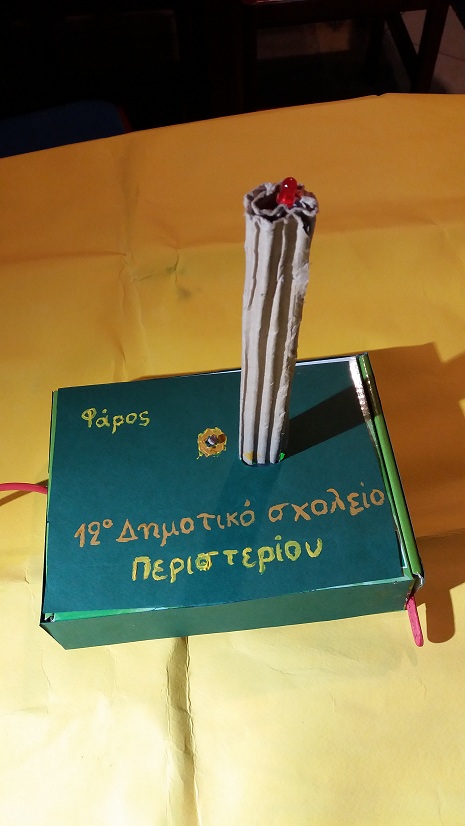 Φάρος
12º Δημοτικό σχολείο
Περιστερίου